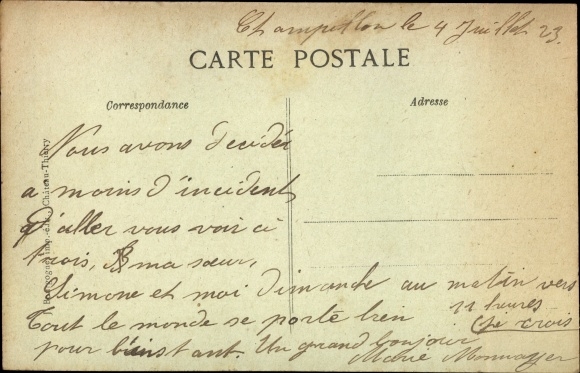 Champillon le 4 Juillet 23.
CARTE POSTALE
Correspondance
Adresse
Nous avons décidés
a moins d'incidents
d'aller vous voir à
trois, ma sœur,
Simone et moi dimanche au matin vers
11 heures
(je crois)
Tout le monde se porte bien
pour l'instant. Un grand bonjour
Marie
imp.-édit., Château-Thierry